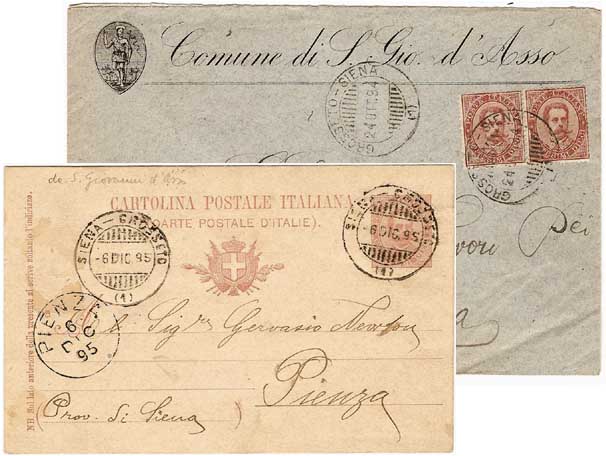 Comune di S. Gio. d'Asso
GROSSETO - SIENA
24 OTT. 94
(2)
GROS
SIEN
24
vori Pei
a
da S. Giovanni d'Asso
CARTOLINA POSTALE ITALIANA
(CARTE POSTALE D'ITALIE).
SIENA - GROSSETO
6 DIC. 95
(1)
SIENA - GROSSETO
6 DIC. 95
(1)
PIENZA
6
DIC
95
Sigre Gervasio Newton
Pienza
(Prov. di Siena)
NB. Sul lato anteriore della presente si scrive soltanto l'indirizzo.